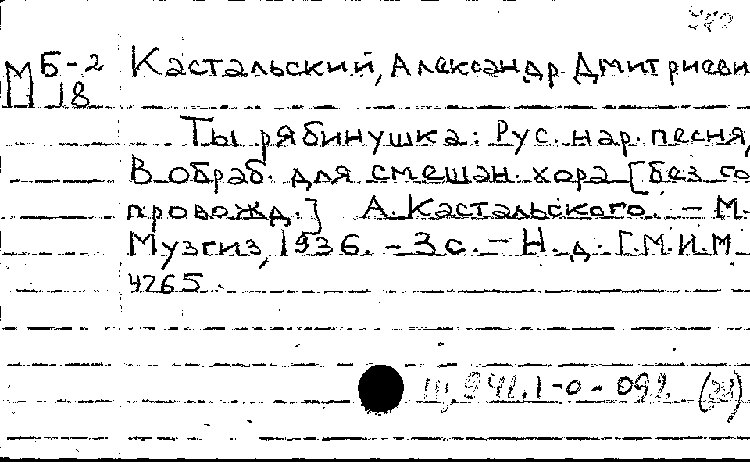 МБ-2
18
Кастальский, Александр Дмитриеви
Ты рябинушка: Рус. нар. песня,
В обраб. для смешан. хора [без со
провожд.] А. Кастальского. - М.
Музгиз, 1936. - 3 с. - Н. д. Г.М.И.М
4265.